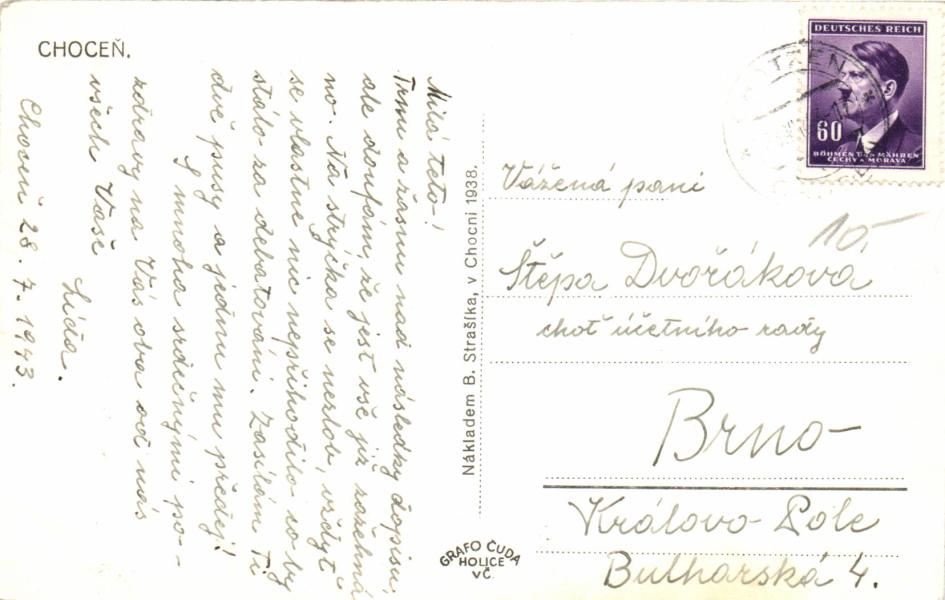 CHOCEŇ.
Milá teto!
Trnu a žasnu nad následky dopisu,
ale doufám, že jest vše již zažehná
no. Na strýčka se nezlob, vždyť
se vlastně nic nepřihodilo co by
stálo za debatování. Zasílám Ti
dvě pusy a jednu mu předej!
S mnoha srdečnými po-
zdravy na Vás oba od nás
všech Vaše
Lída.
Choceň 28. 7. 1943.
Nákladem B. Strašíka, v Chocni 1938.
GRAFO ČUDA
HOLICE
VČ.
DEUTSCHES REICH
60
BÖHMEN UND MÄHREN
ČECHY A MORAVA
Vážená paní
10,
Štěpa Dvořáková
choť účetního rady
Brno
Královo Pole
Bulharská 4.